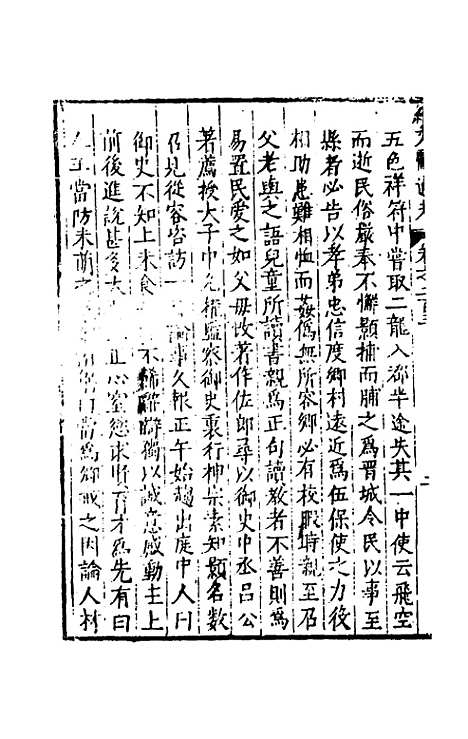 五色祥符中嘗取二龍入都半途失其一中使云飛空
而逝民俗嚴奉不懈顥捕而脯之爲晋城令民以事至
縣者必告以孝弟忠信度鄉村遠近爲伍保使之力役
相助患難相恤而姦僞無所容鄉必有校暇時親至召
父老與之語兒童所讀書親爲正句讀教者不善則爲
易置民愛之如父母改著作佐郎尋以御史中丞吕公
著薦授太子中允權監察御史裏行神宗素知顥名數
召見從容咨訪 論事久報正午始趨出庭中人曰
御史不知上未食 不飾辭辯獨以誠意感動主上
前後進說甚多大 正心窒慾求賢育才爲先有曰
人主當防未萌之 曰當爲卿戒之因論人材